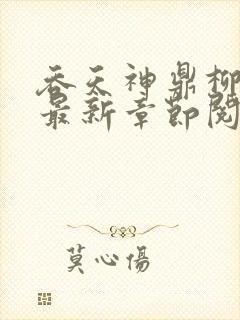 吞天神鼎柳
最新章节阅
莫心傷